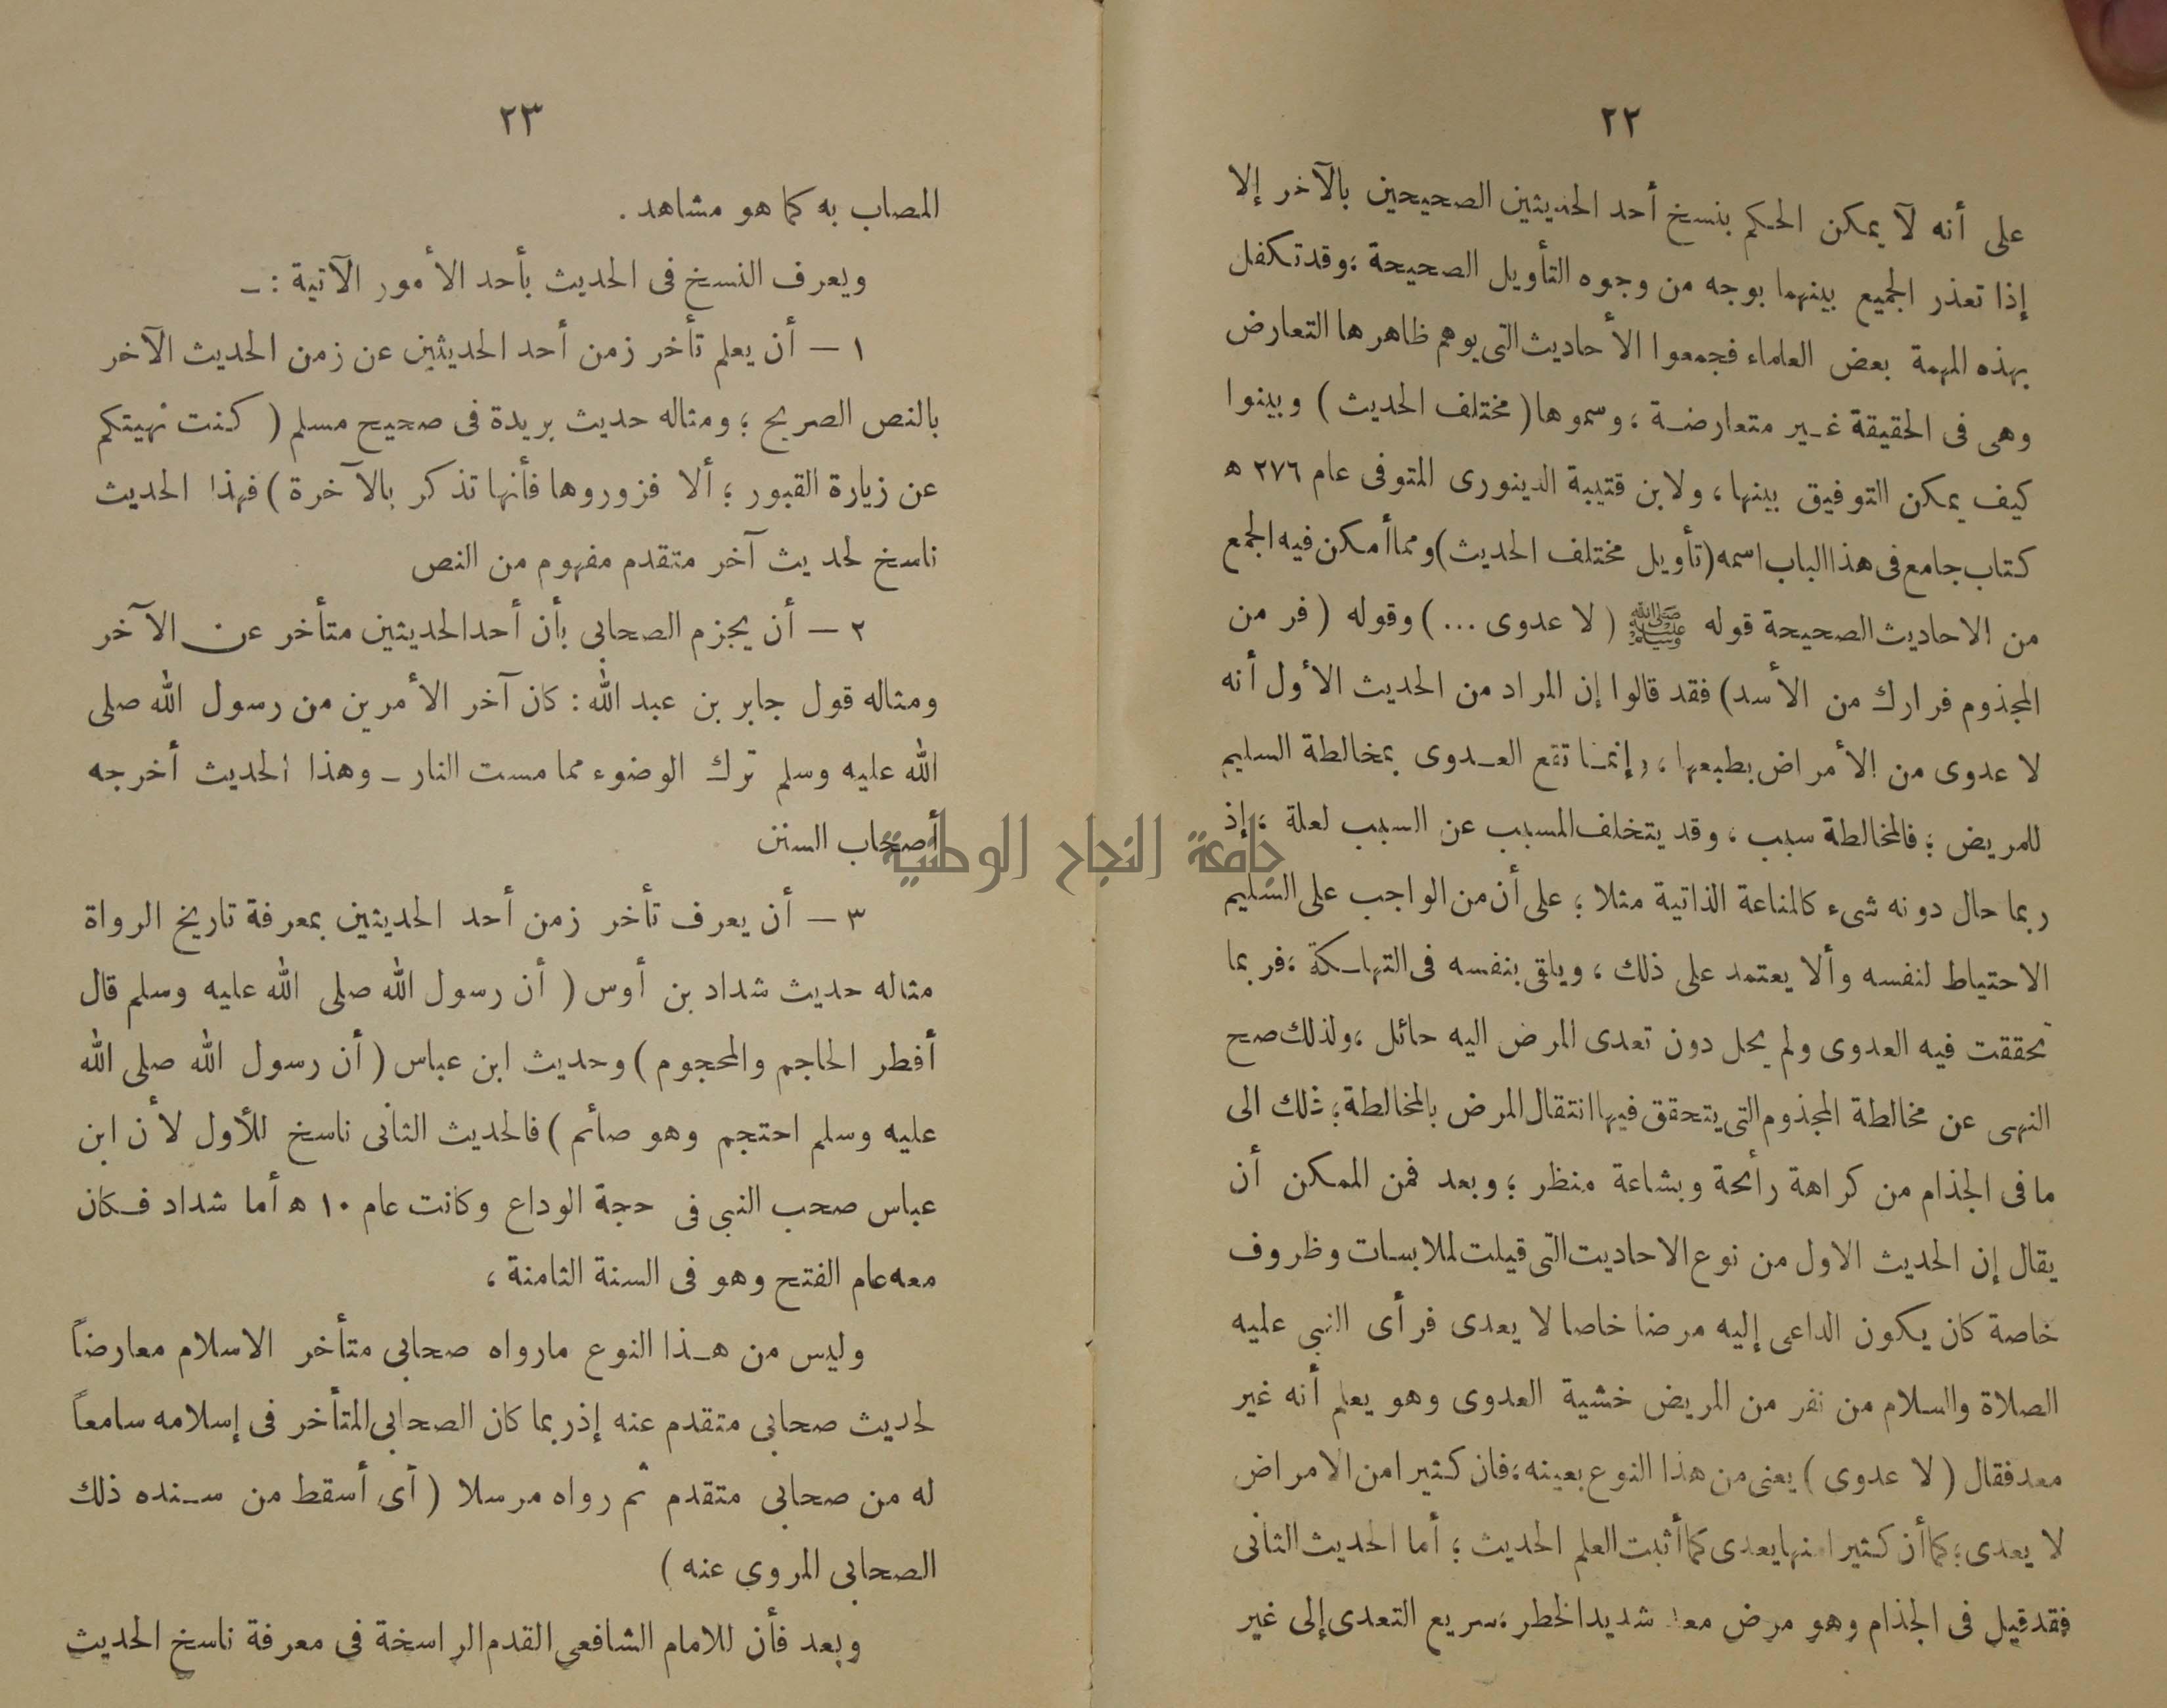 ٢٢
على أنه لا يمكن الحكم بنسخ أحد الحديثين الصحيحين بالآخر إلا
إذا تعذر الجميع بينهما بوجه من وجوه التأويل الصحيحة ؛ وقد تكفل
بهذه المهمة بعض العلماء فجمعوا الأحاديث التى يوهم ظاهرها التعارض
وهى فى الحقيقة غير متعارضة ؛ وسموها ( مختلف الحديث ) وبينوا
كيف يمكن التوفيق بينها ، ولابن قتيبة الدينورى المتوفى عام ٢٧٦ ه
كتاب جامع فى هذا الباب اسمه ( تأويل مختلف الحديث ) ومما أمكن فيه الجمع
من الاحاديث الصحيحة قوله ﷺ ( لا عدوى ... ) وقوله ( فر من
المجذوم فرارك من الأسد ) فقد قالوا إن المراد من الحديث الأول أنه
لا عدوى من الأمراض بطبعها ، وإنما تقع العدوى بمخالطة السليم
للمريض ؛ فالمخالطة سبب ، وقد يتخلف المسبب عن السبب لعلة ؛ إذ
ربما حال دونه شىء كالمناعة الذاتية مثلا ؛ على أن من الواجب على السليم
الاحتياط لنفسه وألا يعتمد على ذلك ، ويلقى بنفسه فى التهلكة ؛ فربما
تحققت فيه العدوى ولم يحل دون تعدى المرض اليه حائل ؛ ولذلك صح
النهى عن مخالطة المجذوم التى يتحقق فيها انتقال المرض بالمخالطة ؛ ذلك الى
ما فى الجذام من كراهة رائحة وبشاعة منظر ؛ وبعد فمن الممكن أن
يقال إن الحديث الاول من نوع الاحاديت التى قيلت لملابسات وظروف
خاصة كان يكون الداعى إليه مرضا خاصا لا يعدى فرأى النبى عليه
الصلاة والسلام من نفر من المريض خشية العدوى وهو يعلم أنه غير
معد فقال ( لا عدوى ) يعنى من هذا النوع بعينه ؛ فان كثيرا من الامراض
لا يعدى ؛ كما أن كثيرا منها يعدى كما أثبت العلم الحديث ؛ أما الحديث الثانى
فقد قيل فى الجذام وهو مرض معد شديد الخطر ؛ سريع التعدى إلى غير
٢٣
المصاب به كما هو مشاهد .
ويعرف النسخ فى الحديث بأحد الأمور الآتية : ـ
١ – أن يعلم تأخر زمن أحد الحديثين عن زمن الحديث الآخر
بالنص الصريح ؛ ومثاله حديث بريدة فى صحيح مسلم ( كنت نهيتكم
عن زيارة القبور ؛ ألا فزوروها فأنها تذكر بالآخرة ) فهذا الحديث
ناسخ لحديث آخر متقدم مفهوم من النص
٢ – أن يجزم الصحابى بأن أحد الحديثين متأخر عن الآخر
ومثاله قول جابر بن عبد الله : كان آخر الأمرين من رسول الله صلى
الله عليه وسلم ترك الوضوء مما مست النار ـ وهذا الحديث أخرجه
أصحاب السنن
٣ – أن يعرف تأخر زمن أحد الحديثين بمعرفة تاريخ الرواة
مثاله حديث شداد بن أوس ( أن رسول الله صلى الله عليه وسلم قال
أفطر الحاجم والمحجوم ) وحديث ابن عباس ( أن رسول الله صلى الله
عليه وسلم احتجم وهو صائم ) فالحديث الثانى ناسخ للأول لأن ابن
عباس صحب النبى فى حجة الوداع وكانت عام ١٠ ه أما شداد فكان
معه عام الفتح وهو فى السنة الثامنة ،
وليس من هذا النوع مارواه صحابى متأخر الاسلام معارضاً
لحديث صحابى متقدم عنه إذ ربما كان الصحابى المتأخر فى إسلامه سامعاً
له من صحابى متقدم ثم رواه مرسلا ( أى أسقط من سنده ذلك
الصحابى المروى عنه )
وبعد فأن للامام الشافعى القدم الراسخة فى معرفة ناسخ الحديث
جامعة النجاح الوطنية